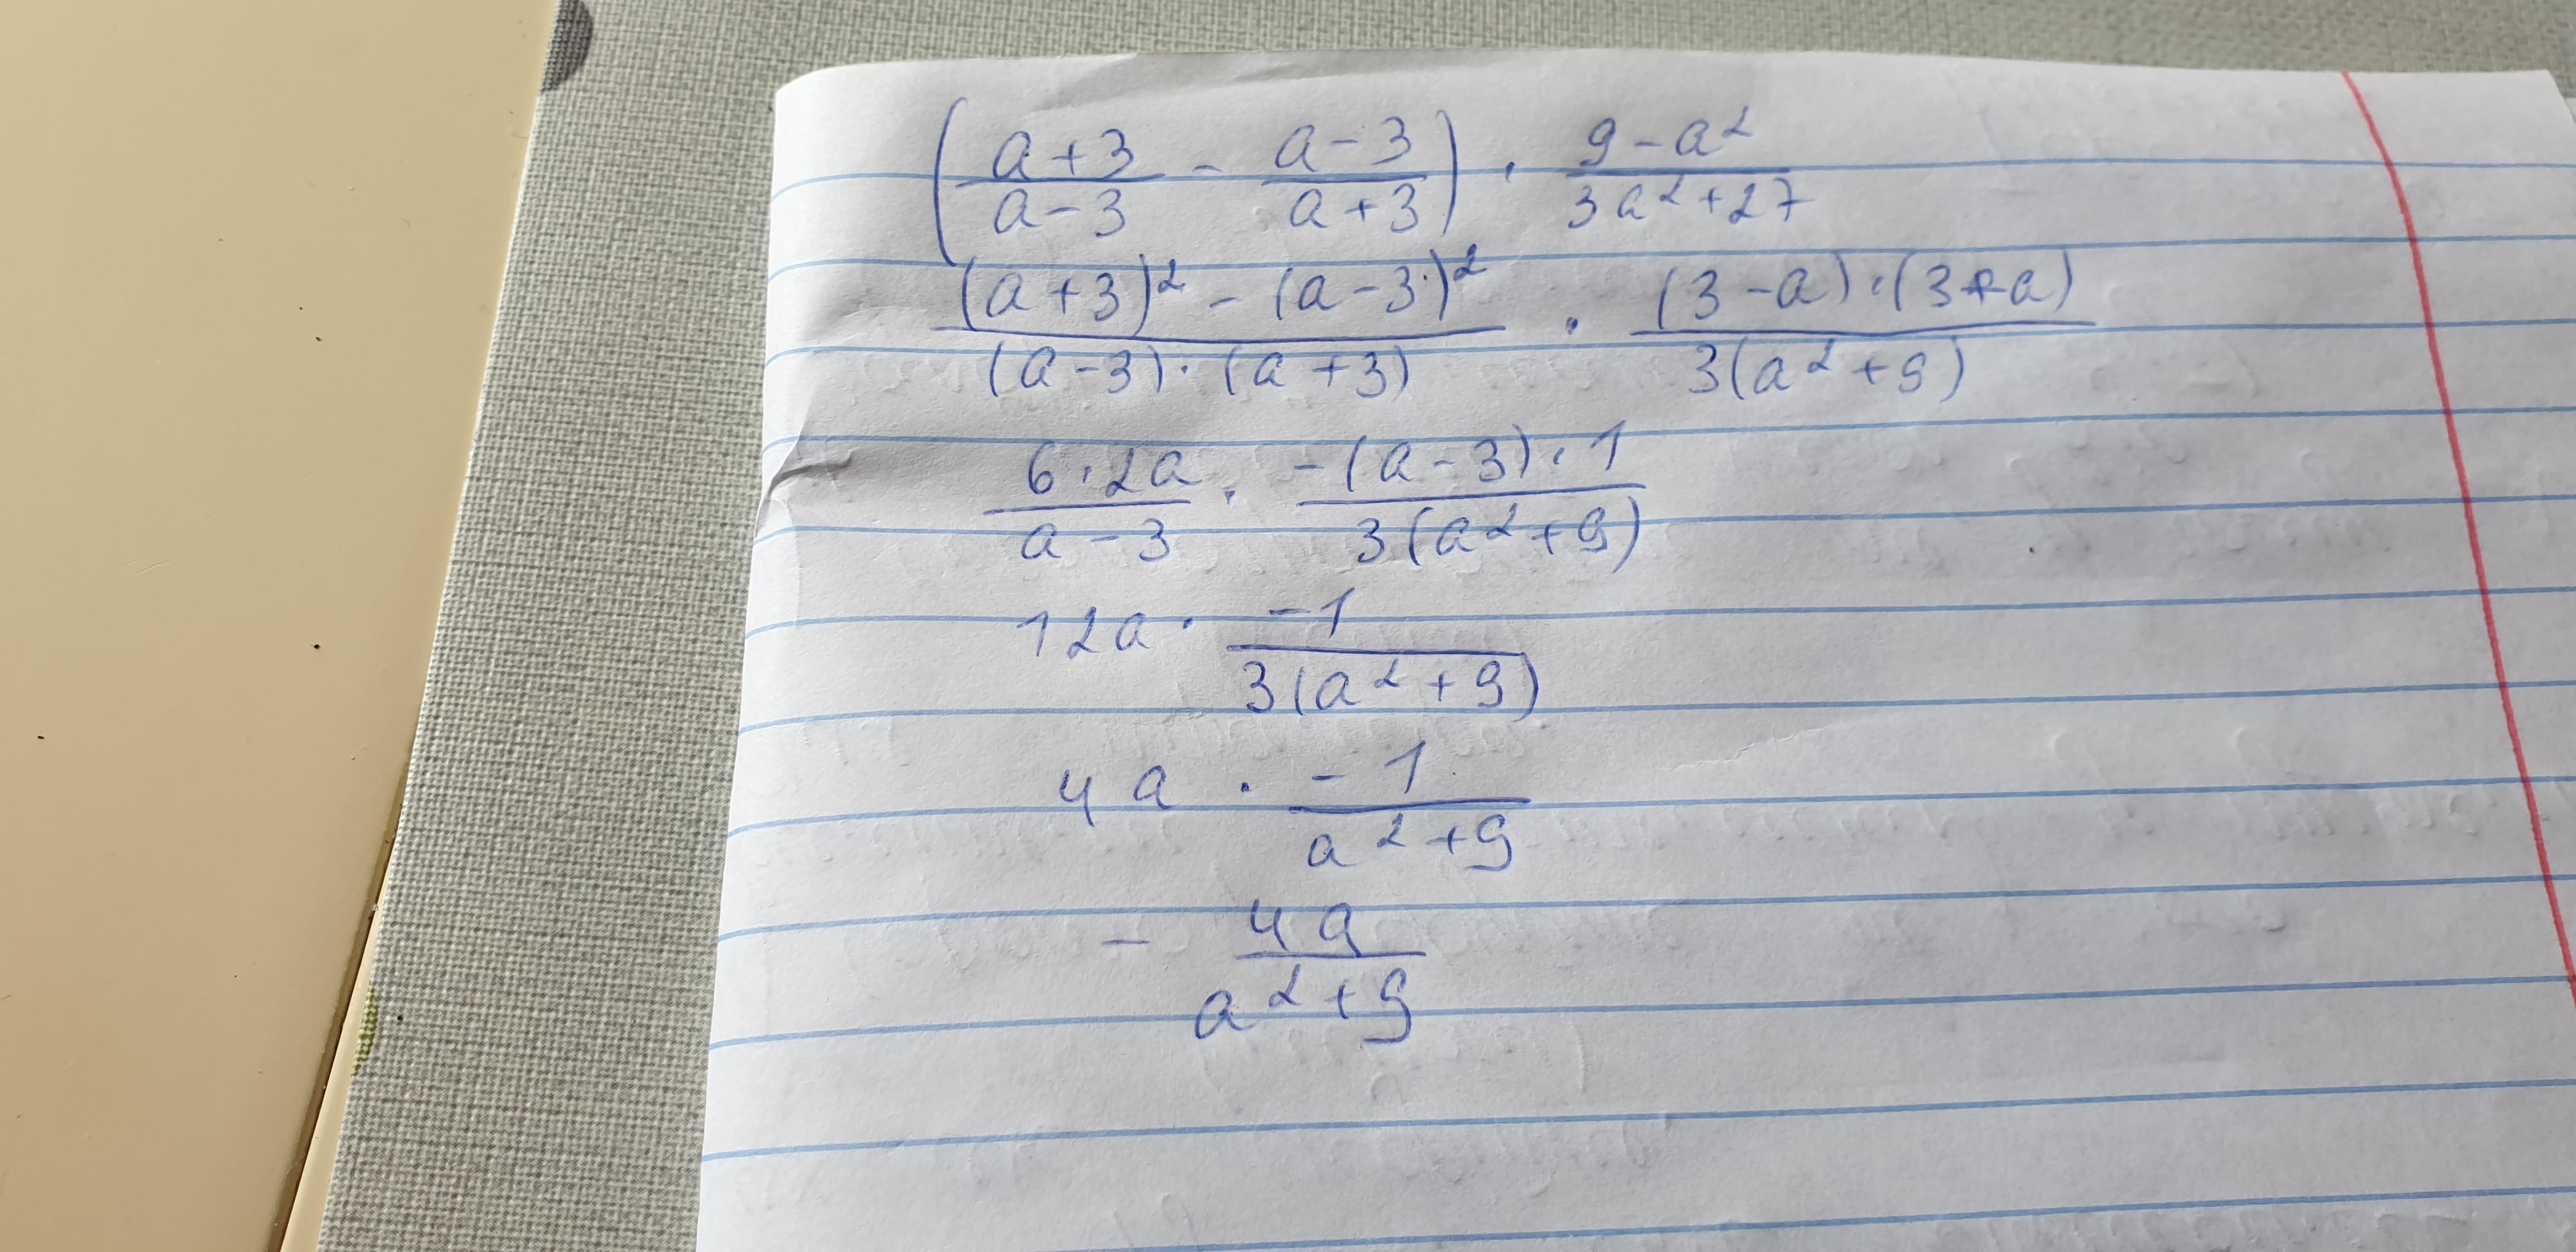 (a+3/a-3 - a-3/a+3) · 9-a²/3a²+27
(a+3)² - (a-3)²/(a-3)·(a+3) · (3-a)·(3+a)/3(a²+9)
6·2a/a-3 · -(a-3)·1/3(a²+9)
12a · -1/3(a²+9)
4a · -1/a²+9
- 4a/a²+9